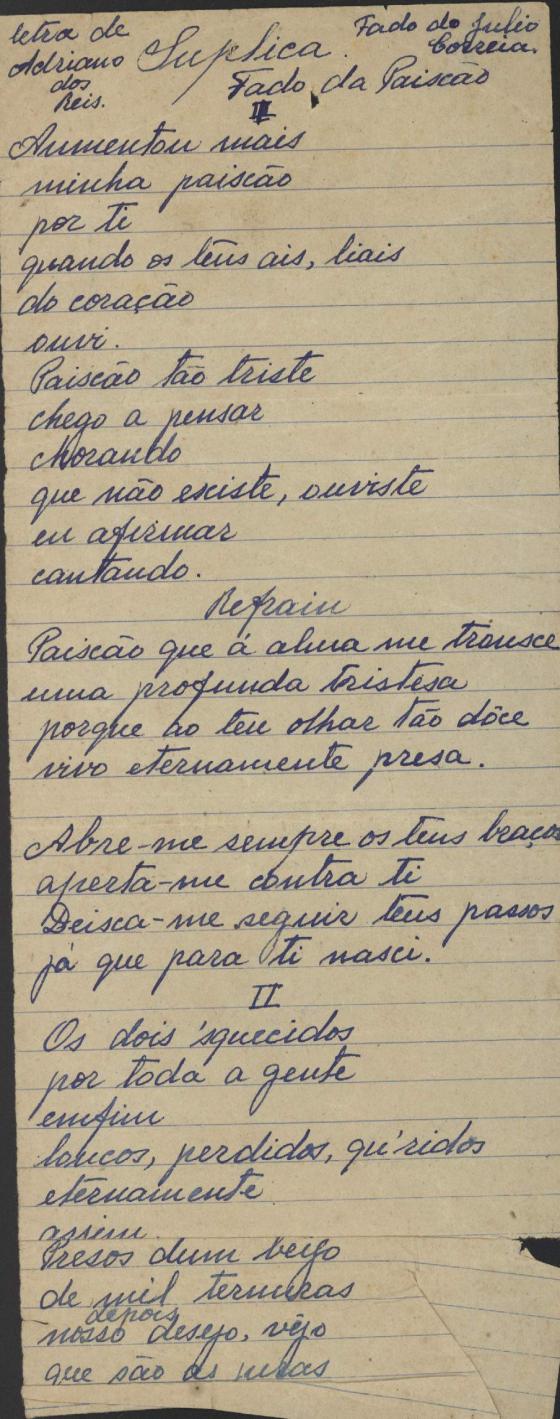 letra de
Adriano
dos
Reis.
Suplica.
Fado do Julio
Correia.
Fado da Paiscão
I
Aumentou mais
minha paiscão
por ti
quando os teus ais, liais
do coração
ouvi.
Paiscão tão triste
chego a pensar
chorando
que não esciste, ouviste
eu afirmar
cantando.
Refrain
Paiscão que á alma me trousce
uma profunda tristesa
porque ao teu olhar tão dôce
vivo eternamente presa.
Abre-me sempre os teus braços
aperta-me contra ti
Deisca-me seguir teus passos
já que para ti nasci.
II
Os dois 'squecidos
por toda a gente
emfim
loucos, perdidos, qu'ridos
eternamente
assim.
Presos dum beijo
de mil ternuras
depois
nosso desejo, vêjo
que são as juras